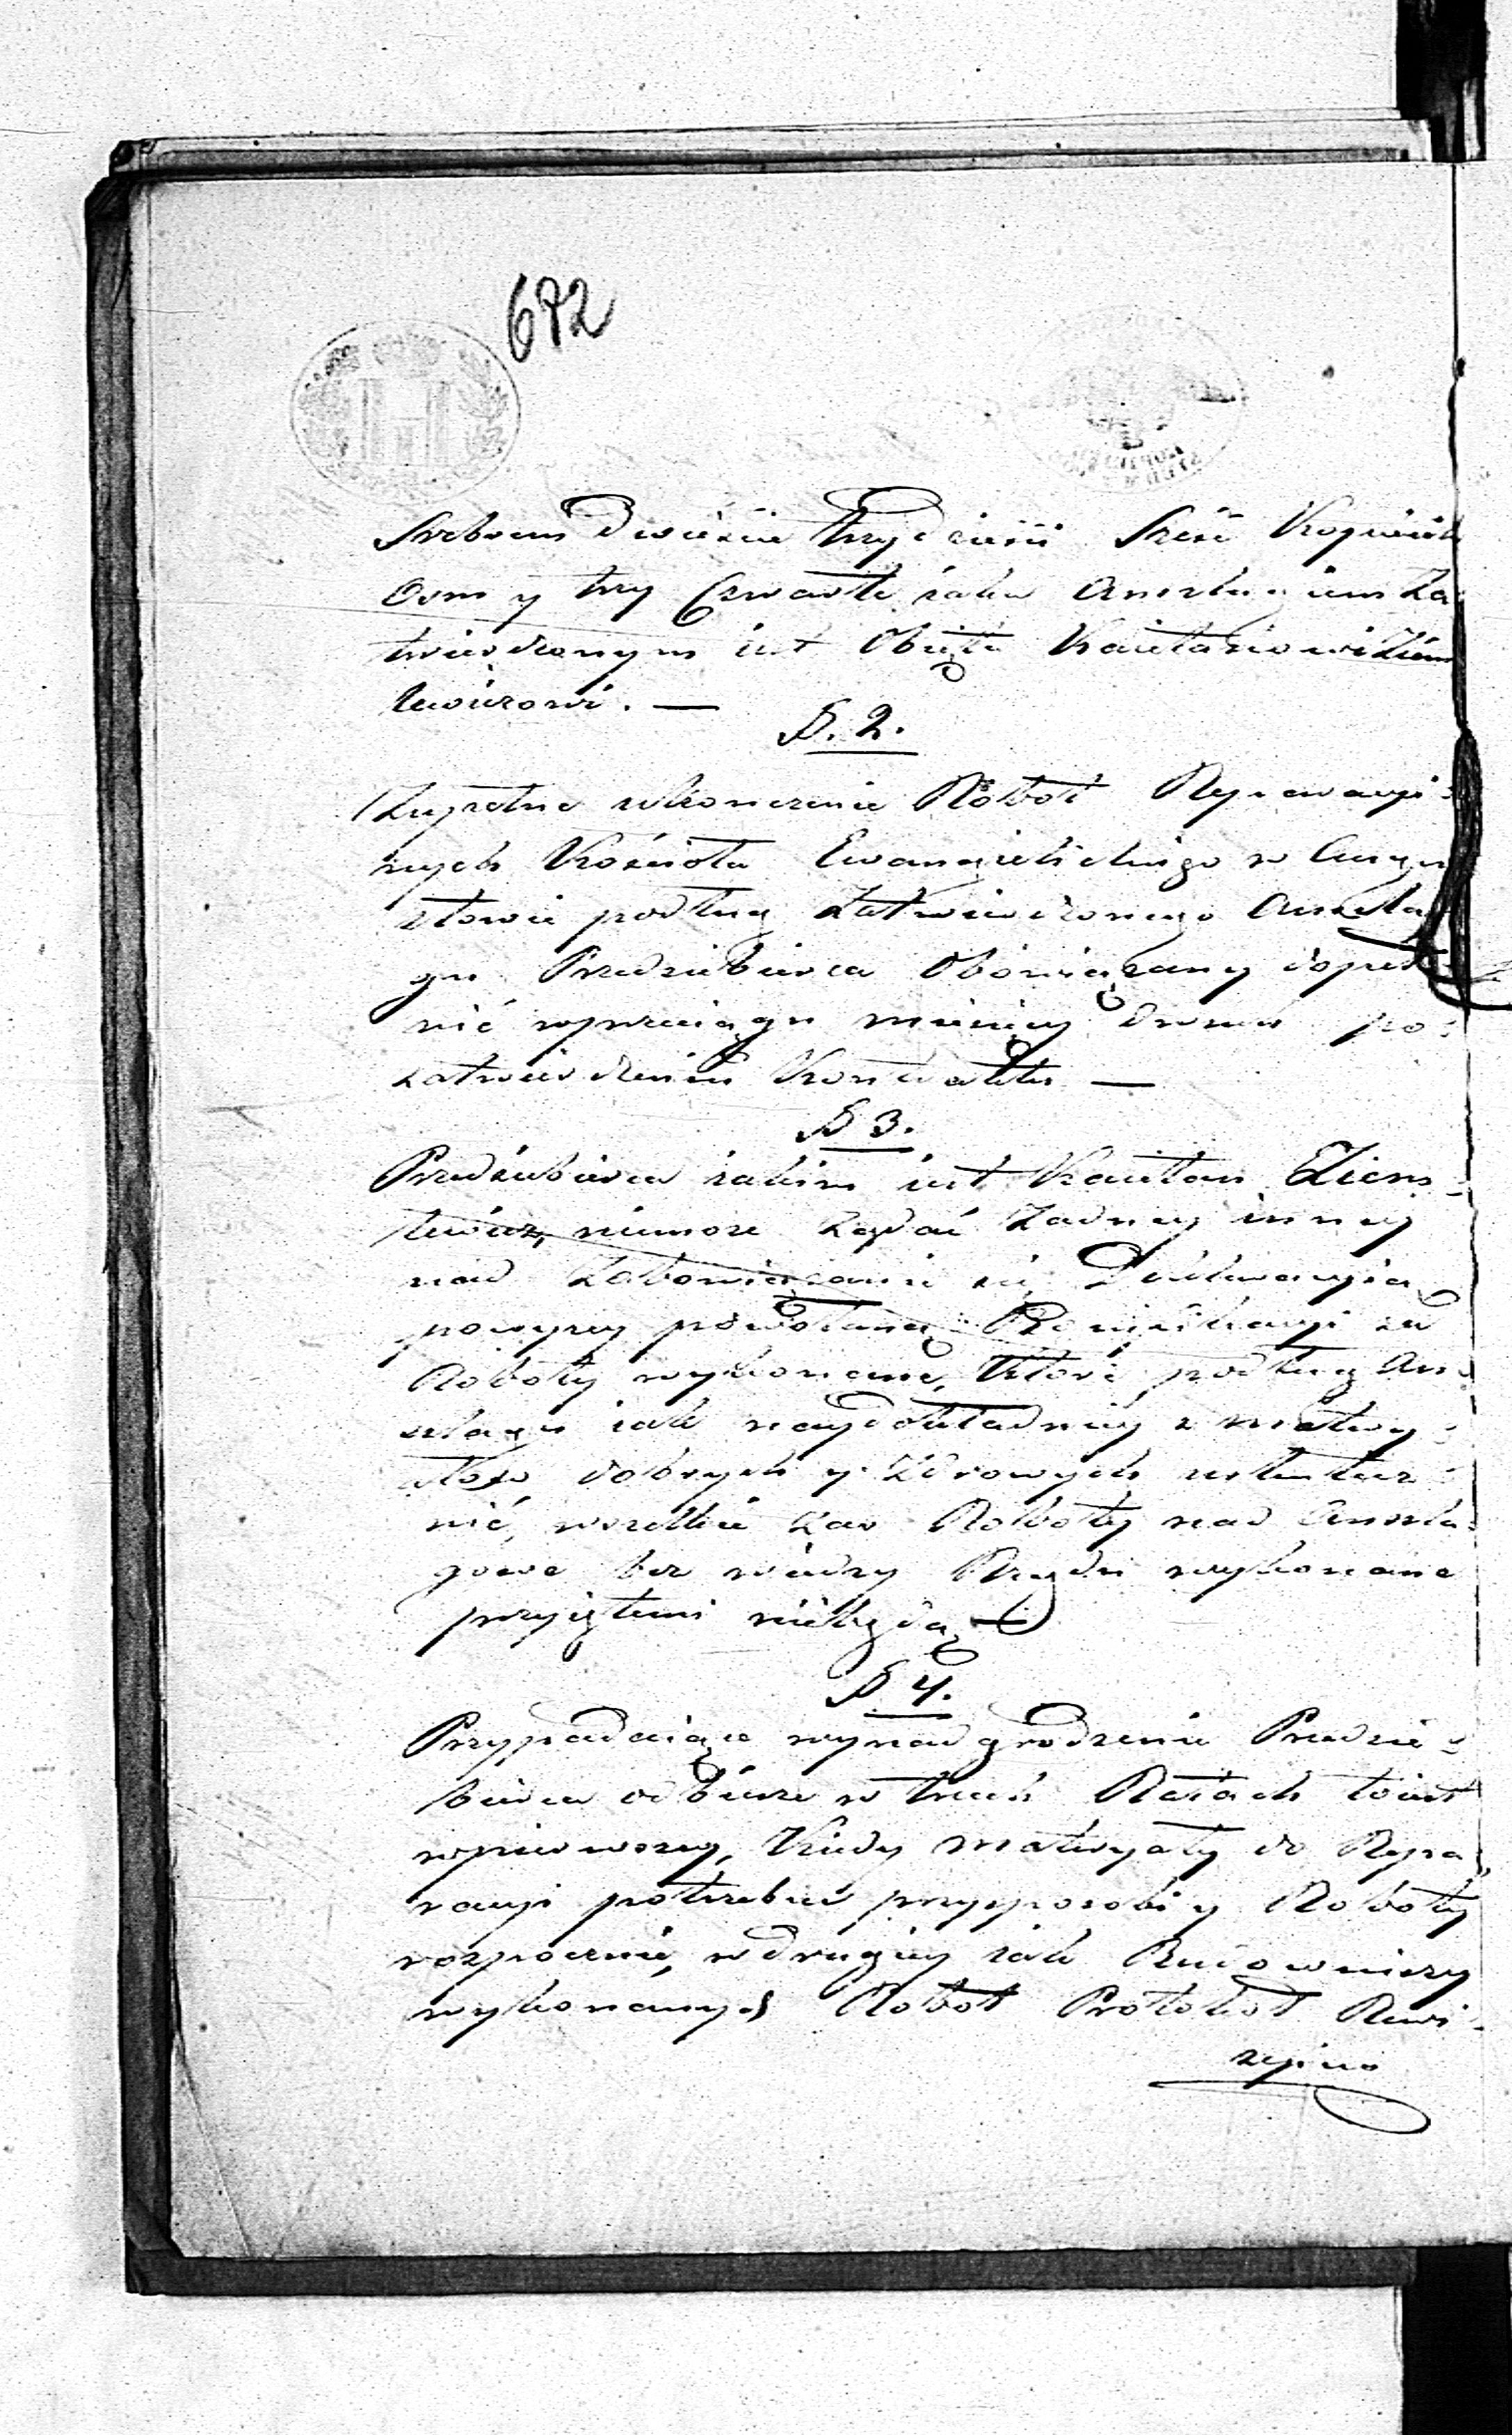 692
Srebrem Dwieście trzydzieści Sześć Kopiiek
Osm y trzy Czwarte jaka Anszlagiem za
twierdzonym iest Obięta Kaietanowi Ziem
lewiczowi. —
§. 2.
Zupełne ukonczenie Robot Reperacyi-
nych Kościoła Ewangielickiego w Augu
stowie podług Zatwierdzonego Anszla
gu Przedsiebierca Obowiązany dopeł-
nić wprzeciągu miesięcy dwuch po
zatwierdzeniu Kontraktu —
§ 3.
Przedsiebierca jakim iest Kaietan Ziem-
lewicz, niemoże Żądać Żadney inney
nad Zobowiązanie się Deklaracyią
powyzey powołaną
Roboty wykonane, które podług An-
szlagu jak naydokładniey z matery-
ałow dobrych y zdrowych uskutecz-
nić, wszelkie zaś Roboty nad Anszla-
gowe bez wiedzy Rządu wykonane
przyiętemi niebędą —
§ 4.
Przypadaiące wynadgrodzenie Przedsie-
bierca odbierze w trzech Ratach to iest
wpierwszey, Kiedy materyały do Repa-
racyi potrzebne przysposobi y Roboty
rozpocznie, w drugiey jak Budowniczy
wykonanych Robot Protokoł Rewi-
zyiny